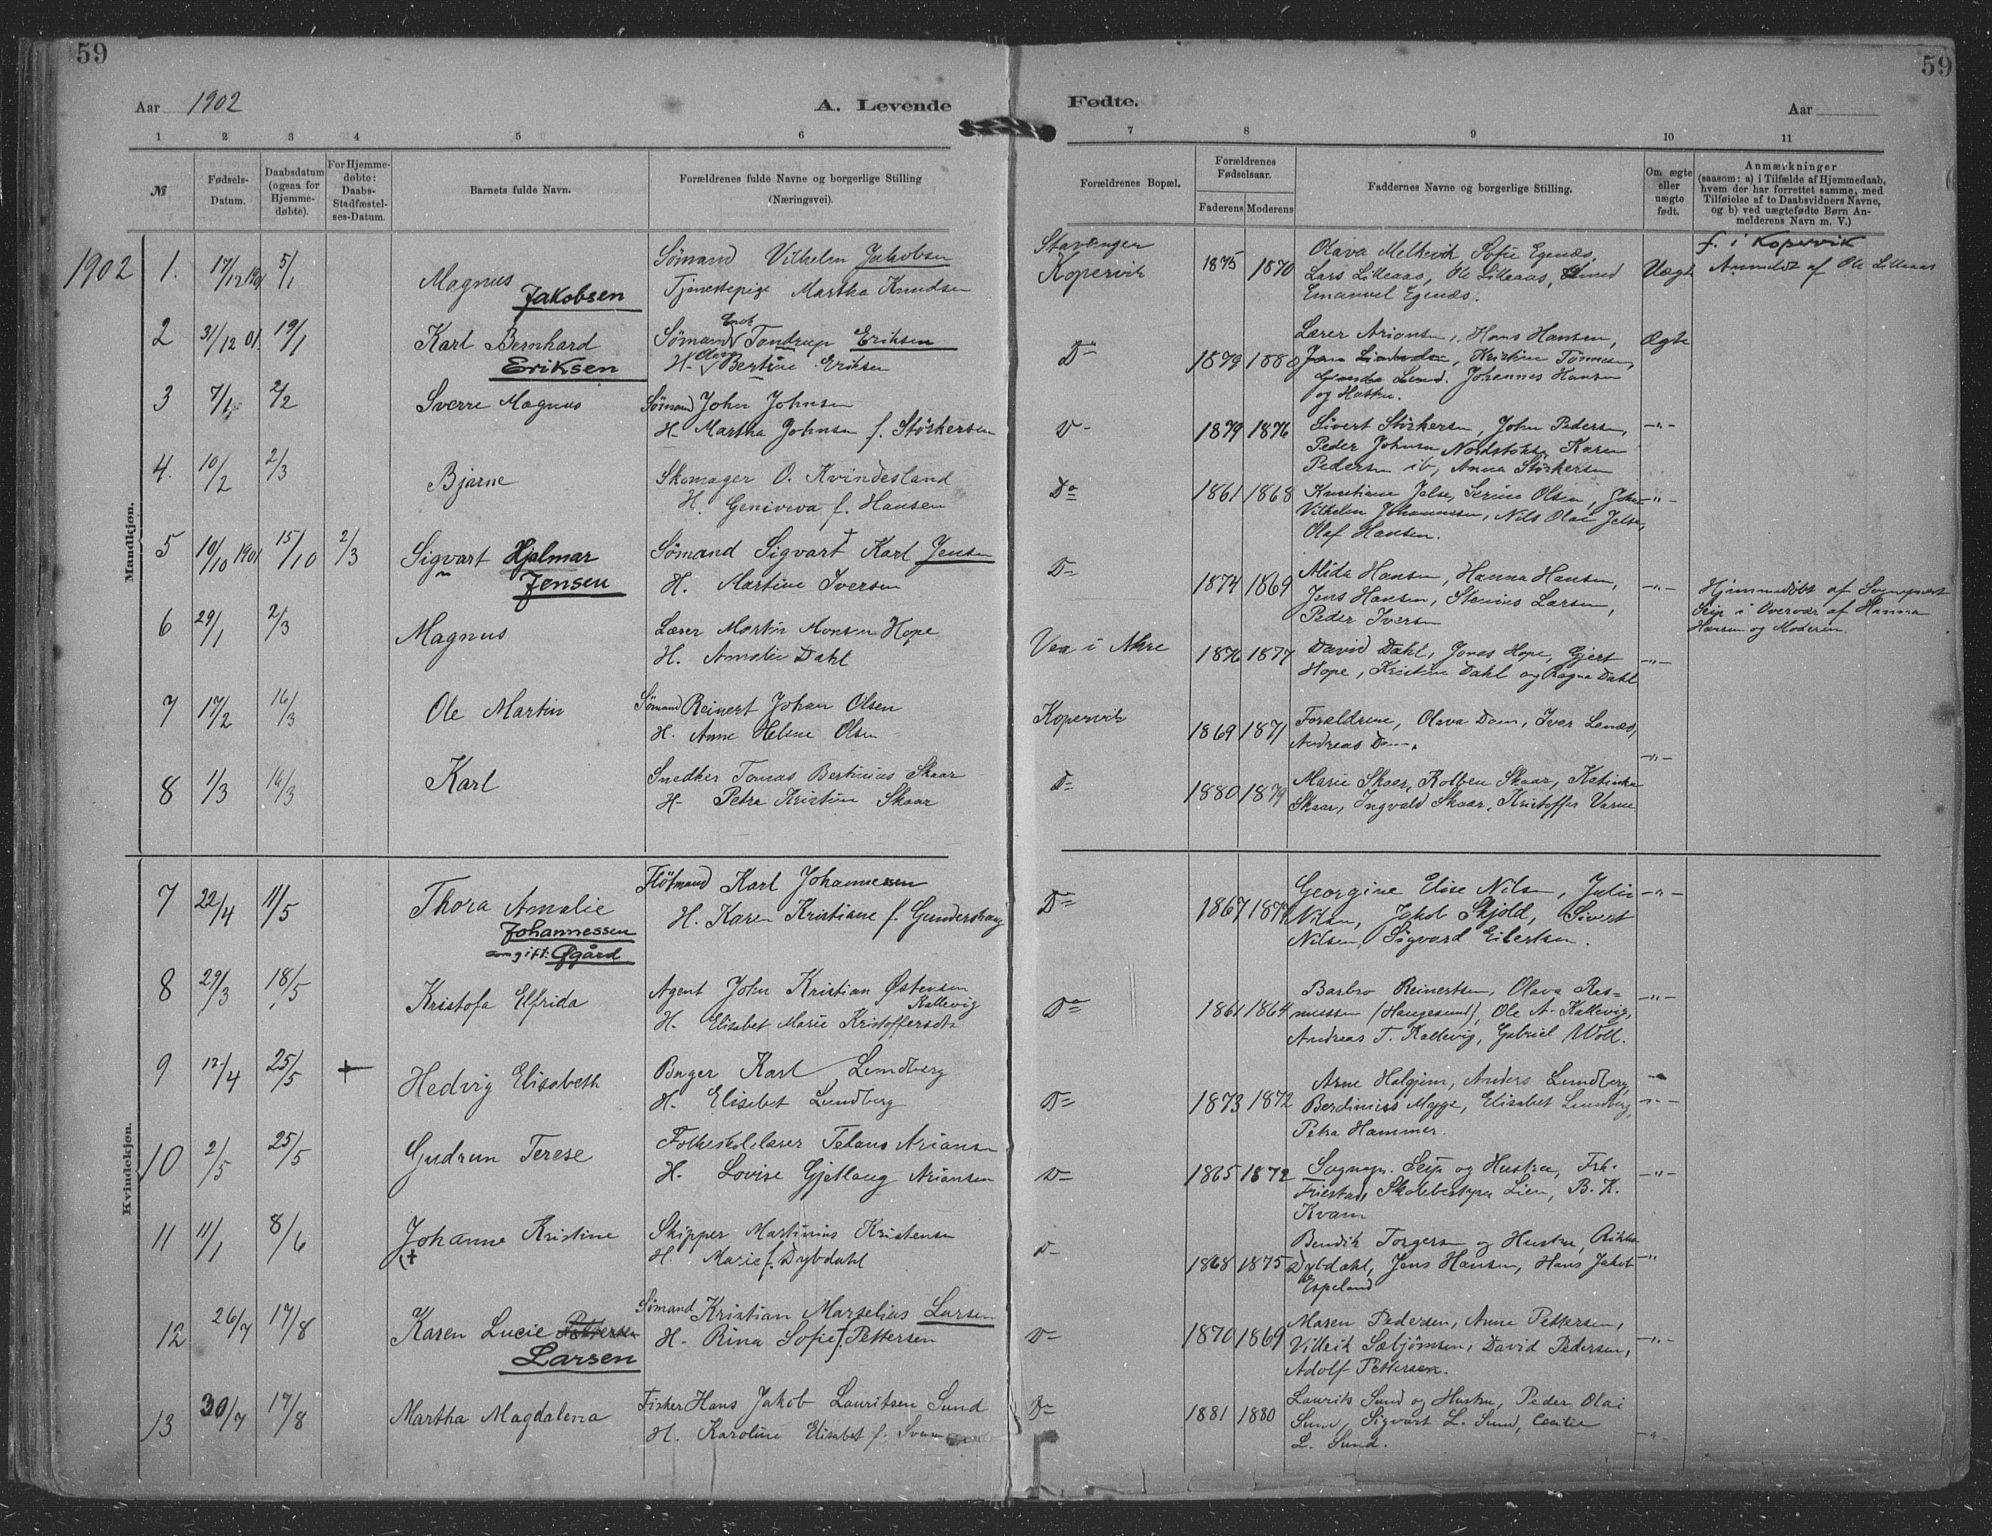 59
59
Aar 1902
A. Levende
Fødte.
Aar
1 2 3 4 5 6 7 8 9 10 11
№
Fødsels-
Datum.
Daabsdatum
(ogsaa for
Hjemme-
døbte).
For Hjemme-
døbte:
Daabs-
Stadfæstel-
ses-Datum.
Barnets fulde Navn.
Forældrenes fulde Navne og borgerlige Stilling
(Næringsvei).
Forældrenes Bopæl.
Forældrenes
Fødselsaar.
Faderens Moderens
Faddernes Navne og borgerlige Stilling.
Om ægte
eller
uægte
født.
Anmærkninger
(saasom: a) i Tilfælde af Hjemmedaab,
hvem der har forrettet samme, med
Tilføielse af to Daabsvidners Navne,
og b) ved uægtefødte Børn An-
melderens Navn m. V.)
Mandkjøn.
1902
1. 17/12 1901 5/1
Magnus
Jakobsen
Sømand Vilhelm Jakobsen
Tjenestepige Martha Knudsen
Stavanger
Kopervik
1875 1870
Olava Melkevik, Sofie Egenæs,
Lars Lilleaas, Ole Lilleaas,
Emanuel Egenæs.
Uægte
f. i Kopervik
Anmeldt af Ole Lilleaas
2 31/12 01. 19/1
Karl Bernhard
Eriksen
Sømand Tandrup Eriksen
H. Bertine Eriksen
Do
1879 1880
Lærer Ariansen, Hans Hansen,
Kristine Tønnesen,
Lund. Johannes Hansen
og Hustru.
Ægte
3 7/1 2/2
Sverre Magnus
Sømand John Johnsen
H. Martha Johnsen f. Størkersen
Do
1879 1876
Sivert Størkersen, John Pedersen,
Peder Johnsen Nordstokke, Karen
Pedersen ib, Anna Størkersen
-"-
4. 10/2 2/3
Bjarne
Skomager O. Kvindesland
H. Geniveva f. Hansen
Do
1861 1868
Kristiane Jelse, Serine Olsen, John
Vilhelm Johannessen, Nils Olai Jelse,
Olaf Hansen.
-"-
5 10/10 1901 15/10 2/3
Sigvart Hjalmar
Jensen
Sømand Sigvart Karl Jensen
H. Martine Iversen
Do
1874 1869
Alida Hansen, Hanna Hansen,
Jens Hansen, Stenius Larsen,
Peder Iversen
-"-
Hjemmedøbt af Sognepræst
Seip i Overvær af Hanna
Hansen og Moderen.
6 29/1 2/3
Magnus
Lærer Martin Monsen Hope
H. Amalie Dahl
Vea i Akre
1876 1877
David Dahl, Jonas Hope, Gjert
Hope, Kristine Dahl og Ragna Dahl
-"-
7 17/2 16/3
Ole Martin
Sømand Reinert Johan Olsen
H. Anne Helene Olsen
Kopervik
1869 1871
Forældrene, Olava Dam, Iver Lenæs,
Andreas Dam.
-"-
8 1/3 16/3
Karl
Snedker Tomas Bertinius Skaar
H. Petra Kristine Skaar
Do
1880 1879
Marie Skaar, Kolben Skaar, Katinka
Skaar, Ingvald Skaar, Kristoffer Varne
Kvindekjøn.
7 22/4 11/5
Thora Amalie
Johannessen
som gift: Øgård
Fløtmand Karl Johannessen
H. Karen Kristiane f. Gundershaug
Do
1867
Georgine Elise Nilsen, Julie
Nilsen, Jakob Skjold, Sivert
Nilsen, Sigvard Eilertsen.
-"-
8 29/3 18/5
Kristofa Elfrida
Agent John Kristian Østensen
Kallevig
H. Elisabet Marie Kristoffersdtr
Do
1861 1864
Barbro Reinertsen, Olava Ras-
mussen (Haugesund), Ole A. Kallevig,
Andreas T. Kallevig, Gabriel Woll.
-"-
9 12/4 25/5 +
Hedvig Elisabeth
Bager Karl Lundberg
H. Elisabet Lundberg
Do
1873 1872
Arne Halgjem, Anders Lundberg,
Berdinius Mygge, Elisabet Lundberg,
Petra Hammer.
-"-
10 2/5 25/5
Gudrun Terese
Folkeskolelærer Tetans Ariansen
H. Lovise Gjetlaug Ariansen
Do
1865 1872
Sognepr. Seip og Hustru, Frk.
Friestad, Skolebestyrer Lien, B. K.
Kvam
-"-
11 11/1 8/6
Johanne Kristine
(+
Skipper Martinius Kristensen
H. Marie f. Dybdahl
Do
1868 1875
Bendik Torgersen og Hustru, Rikka
Dybdahl, Jens Hansen, Hans Jakob
Espeland
-"-
12 26/7 17/8
Karen Lucie Pettersen
Larsen
Sømand Kristian Marselius Larsen
H. Rina Sofie f. Pettersen
Do
1870 1869
Maren Pedersen, Anne Pettersen,
Villeik Sæbjørnsen, David Pedersen,
Adolf Pettersen.
-"-
13 30/7 17/8
Martha Magdalena
Fisker Hans Jakob Lauritsen Sund
H. Karoline Elisabet f.
Do
1881 1880
Laurits Sund og Hustru, Peder Olai
Sund, Sigvart L. Sund, Cecilie
L. Sund.
-"-